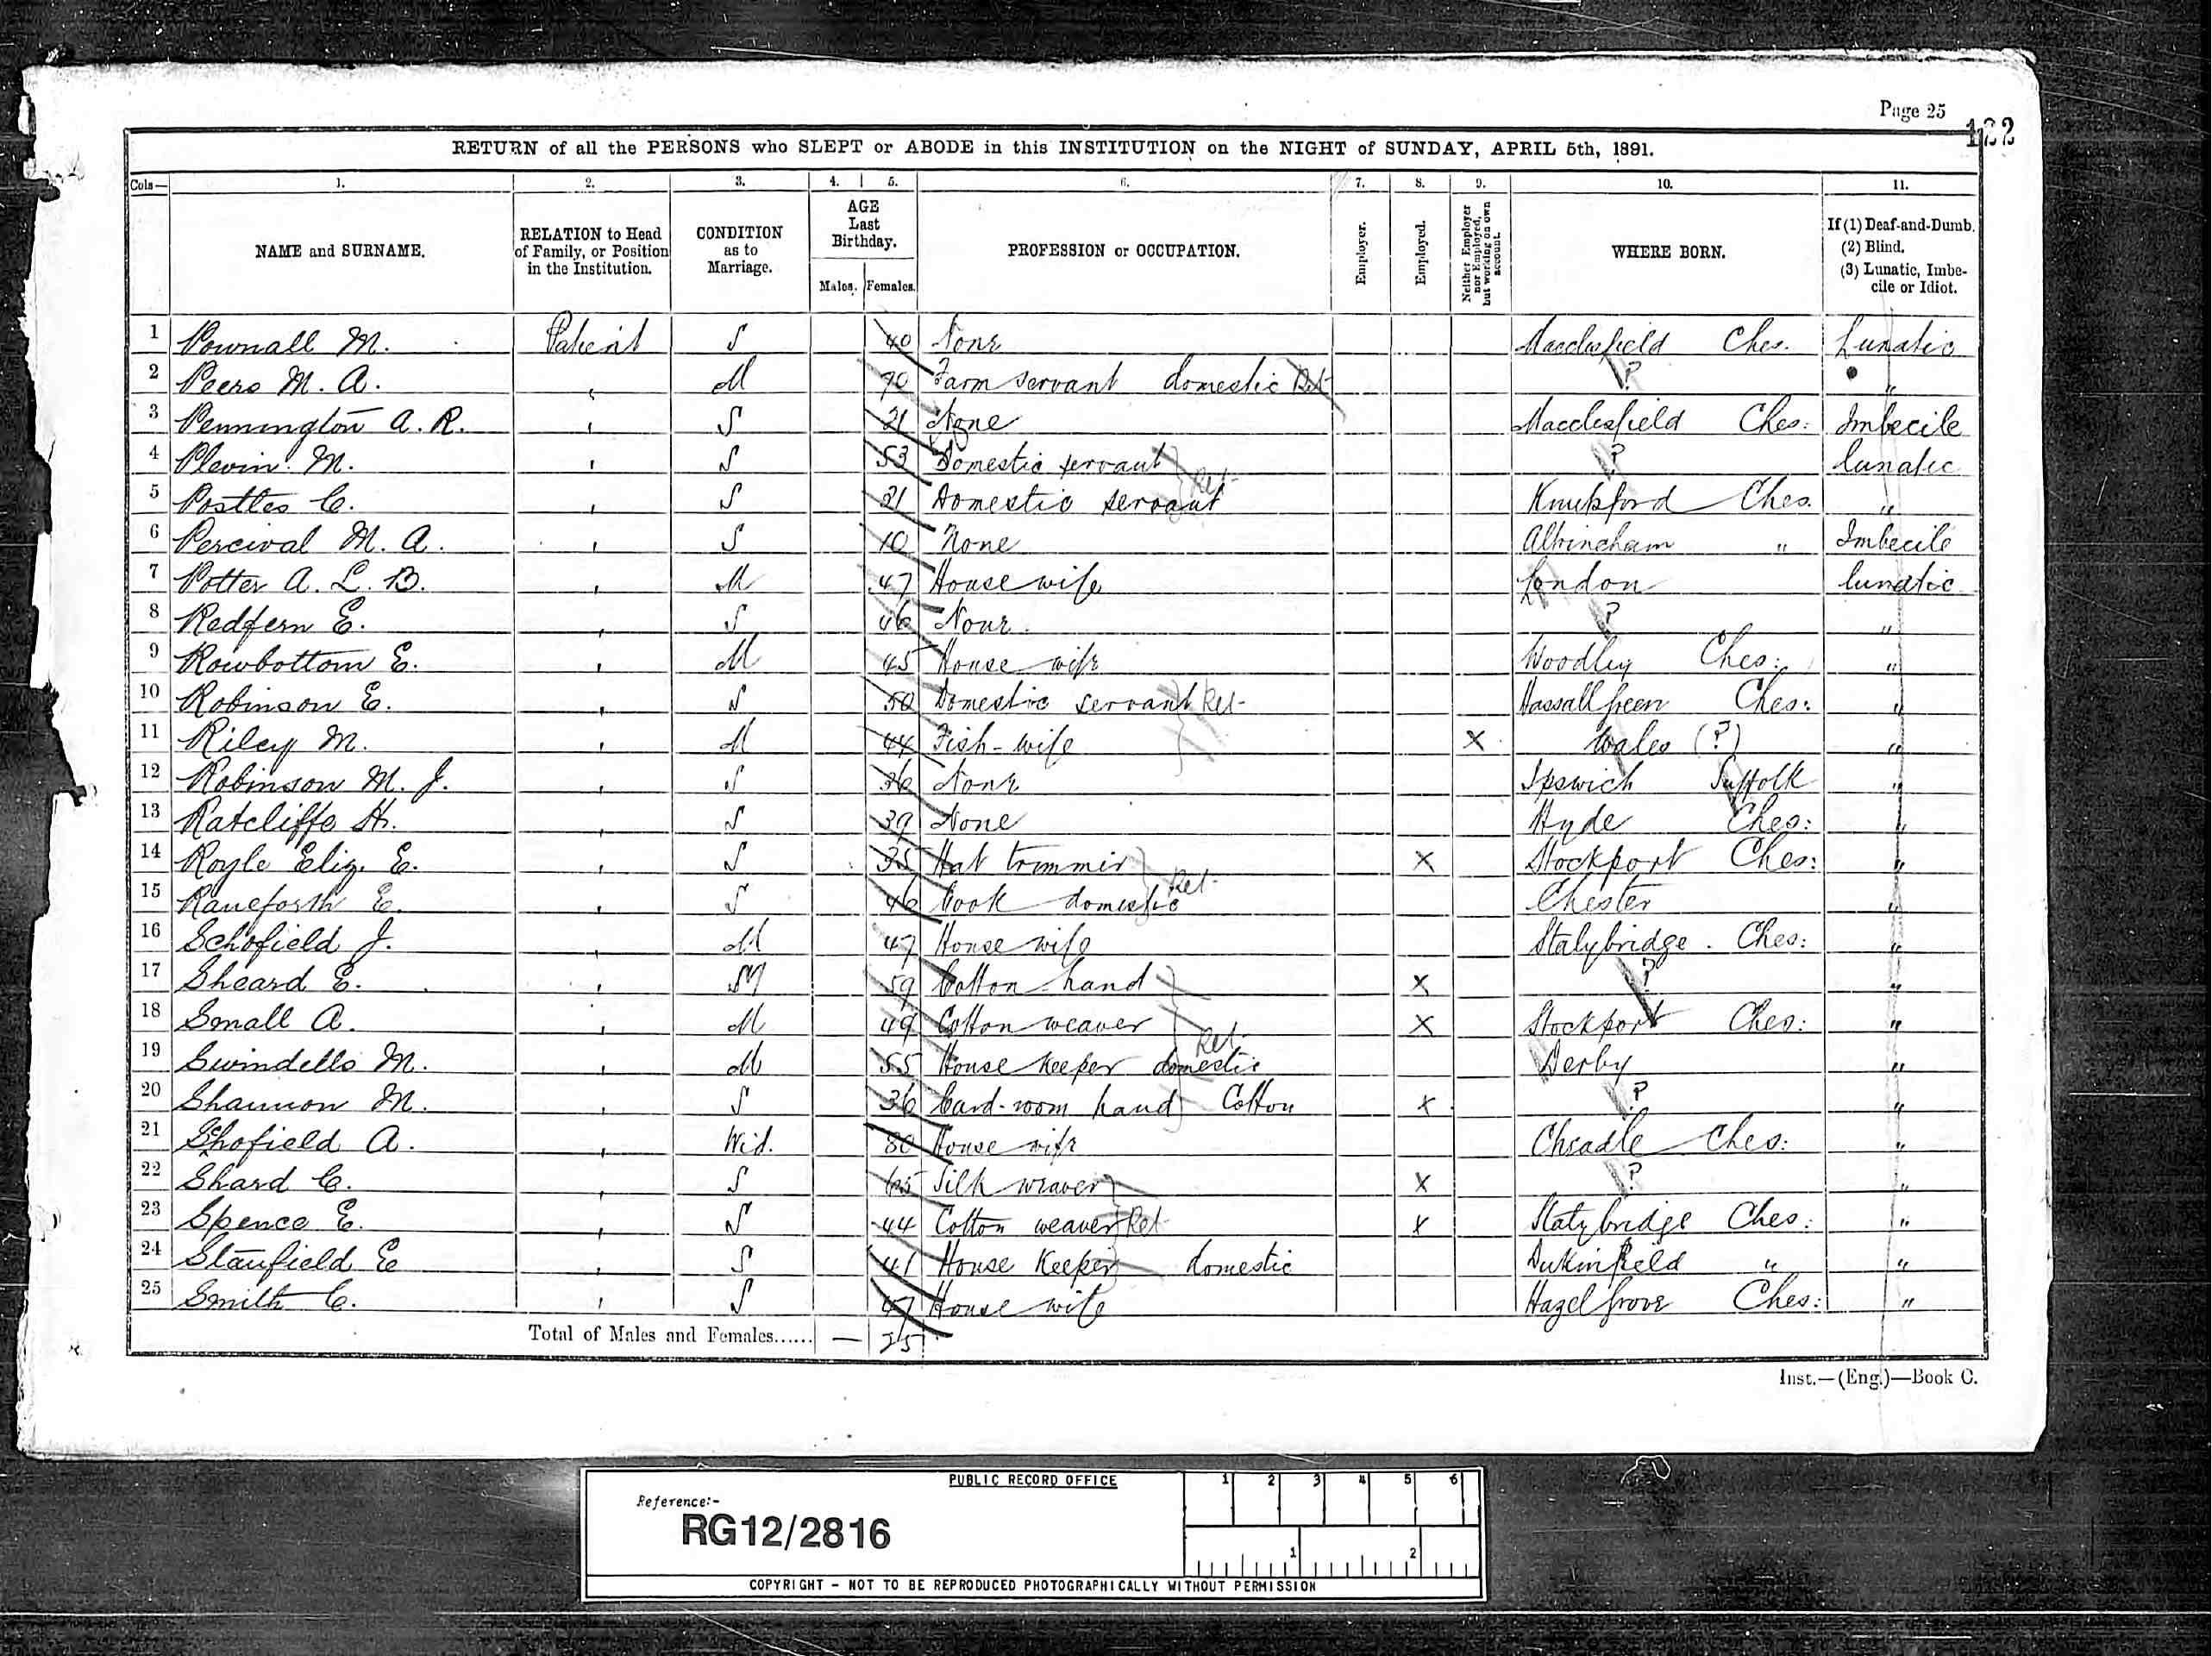 Page 25
122
RETURN of all the PERSONS who SLEPT or ABODE in this INSTITUTION on the NIGHT of SUNDAY, APRIL 5th, 1891.
Cols— 1. 2. 3. 4. 5. 6. 7. 8. 9. 10. 11.
NAME and SURNAME. RELATION to Head of Family, or Position in the Institution. CONDITION as to Marriage. AGE Last Birthday. Males. Females. PROFESSION or OCCUPATION. Employer. Employed. Neither Employer nor Employed, but working on own account. WHERE BORN. If (1) Deaf-and-Dumb. (2) Blind. (3) Lunatic, Imbecile or Idiot.
1 Pownall M. Patient S 40 None Macclesfield Ches. Lunatic
2 Peers M. A. " M 70 Farm servant domestic Ret ? "
3 Pennington A. R. " S 21 None Macclesfield Ches: Imbecile
4 Plevin M. " S 53 Domestic servant ? lunatic
5 Postles C. " S 21 Domestic servant Ret Knutsford Ches. "
6 Percival M. A. " S 10 None Altrincham " Imbecile
7 Potter A. L. B. " M 47 House wife London lunatic
8 Redfern E. " S 46 None ? "
9 Rowbottom E. " M 45 House wife Woodley Ches: "
10 Robinson E. " S 50 Domestic servant Ret Hassall Green Ches: "
11 Riley M. " M 44 Fish-wife X Wales (?) "
12 Robinson M. J. " S 36 None Ipswich Suffolk "
13 Ratcliffe H. " S 39 None Hyde Ches: "
14 Royle Eliz. E. " S 35 Hat trimmer X Stockport Ches: "
15 Raneforth E. " S 46 Cook domestic Ret Chester "
16 Schofield J. " M 47 House wife Stalybridge. Ches: "
17 Sheard E. " M 59 Cotton hand X ? "
18 Small A. " M 49 Cotton weaver X Stockport Ches: "
19 Swindells M. " M 55 House keeper domestic Ret Derby "
20 Shannon M. " S 36 Card-room hand Cotton X ? "
21 Schofield A. " Wid. 80 House wife Cheadle Ches: "
22 Shard C. " S 65 Silk weaver X ? "
23 Spence E. " S 44 Cotton weaver Ret X Stalybridge Ches: "
24 Stanfield E " S 41 House Keeper domestic Dukinfield " "
25 Smith C. " S 47 House wife Hazel Grove Ches: "
Total of Males and Females...... — 25
Inst.—(Eng.)—Book C.
PUBLIC RECORD OFFICE
1 2 3 4 5 6
Reference:-
RG12/2816
1 2
COPYRIGHT - NOT TO BE REPRODUCED PHOTOGRAPHICALLY WITHOUT PERMISSION